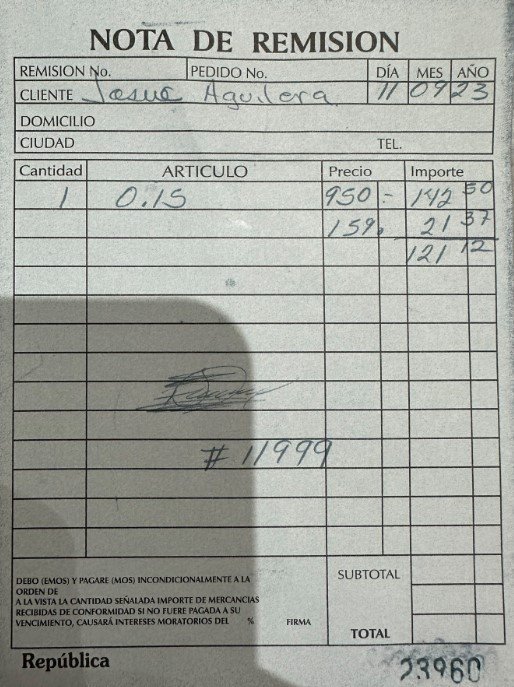 NOTA DE REMISION
REMISION No. PEDIDO No. DÍA MES AÑO
CLIENTE Josue Aguilera 11 09 23
DOMICILIO
CIUDAD TEL.
Cantidad ARTICULO Precio Importe
1 0.15 950.- 142 50
159. 21 37
121 12
# 11999
DEBO (EMOS) Y PAGARE (MOS) INCONDICIONALMENTE A LA SUBTOTAL
ORDEN DE
A LA VISTA LA CANTIDAD SEÑALADA IMPORTE DE MERCANCIAS
RECIBIDAS DE CONFORMIDAD SI NO FUERE PAGADA A SU
VENCIMIENTO, CAUSARÁ INTERESES MORATORIOS DEL % FIRMA
TOTAL
República 23960